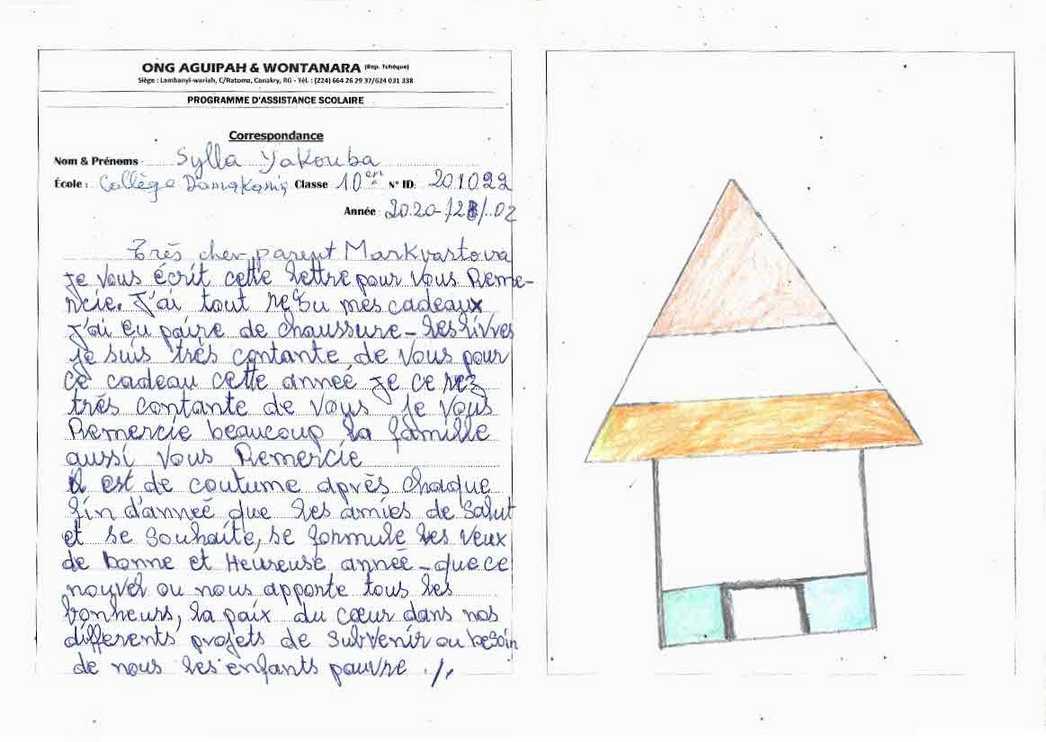 ONG AGUIPAH & WONTANARA (Rep. Tchèque)
Siège : Lambanyi-wariah, C/Ratoma, Conakry, RG - Tél. : (224) 664 26 29 37/624 031 338
PROGRAMME D'ASSISTANCE SCOLAIRE
Correspondance
Nom & Prénoms Sylla Yakouba
École : Collège Classe 10 N° ID: 201022
Année
Très cher parent Markvastova
Je vous écrit cette lettre pour vous Reme-
ncie. J'ai tout resu mes cadeaux
J'ai eu paire de chaussure - les livres
je suis très contante de vous pour
ce cadeau cette anneé je ce rez
très contante de vous je vous
Remercie beaucoup la famille
aussi vous Remercie
il est de coutume après chaque
fin d'anneé que les amies de salut
et se souhaite, se formule les veux
de bonne et Heureuse année - que ce
nouvel ou nous apporte tous les
bonheurs, la paix du cœur dans nos
différents projets de subvenir ou besoin
de nous les enfants pauvre ./.